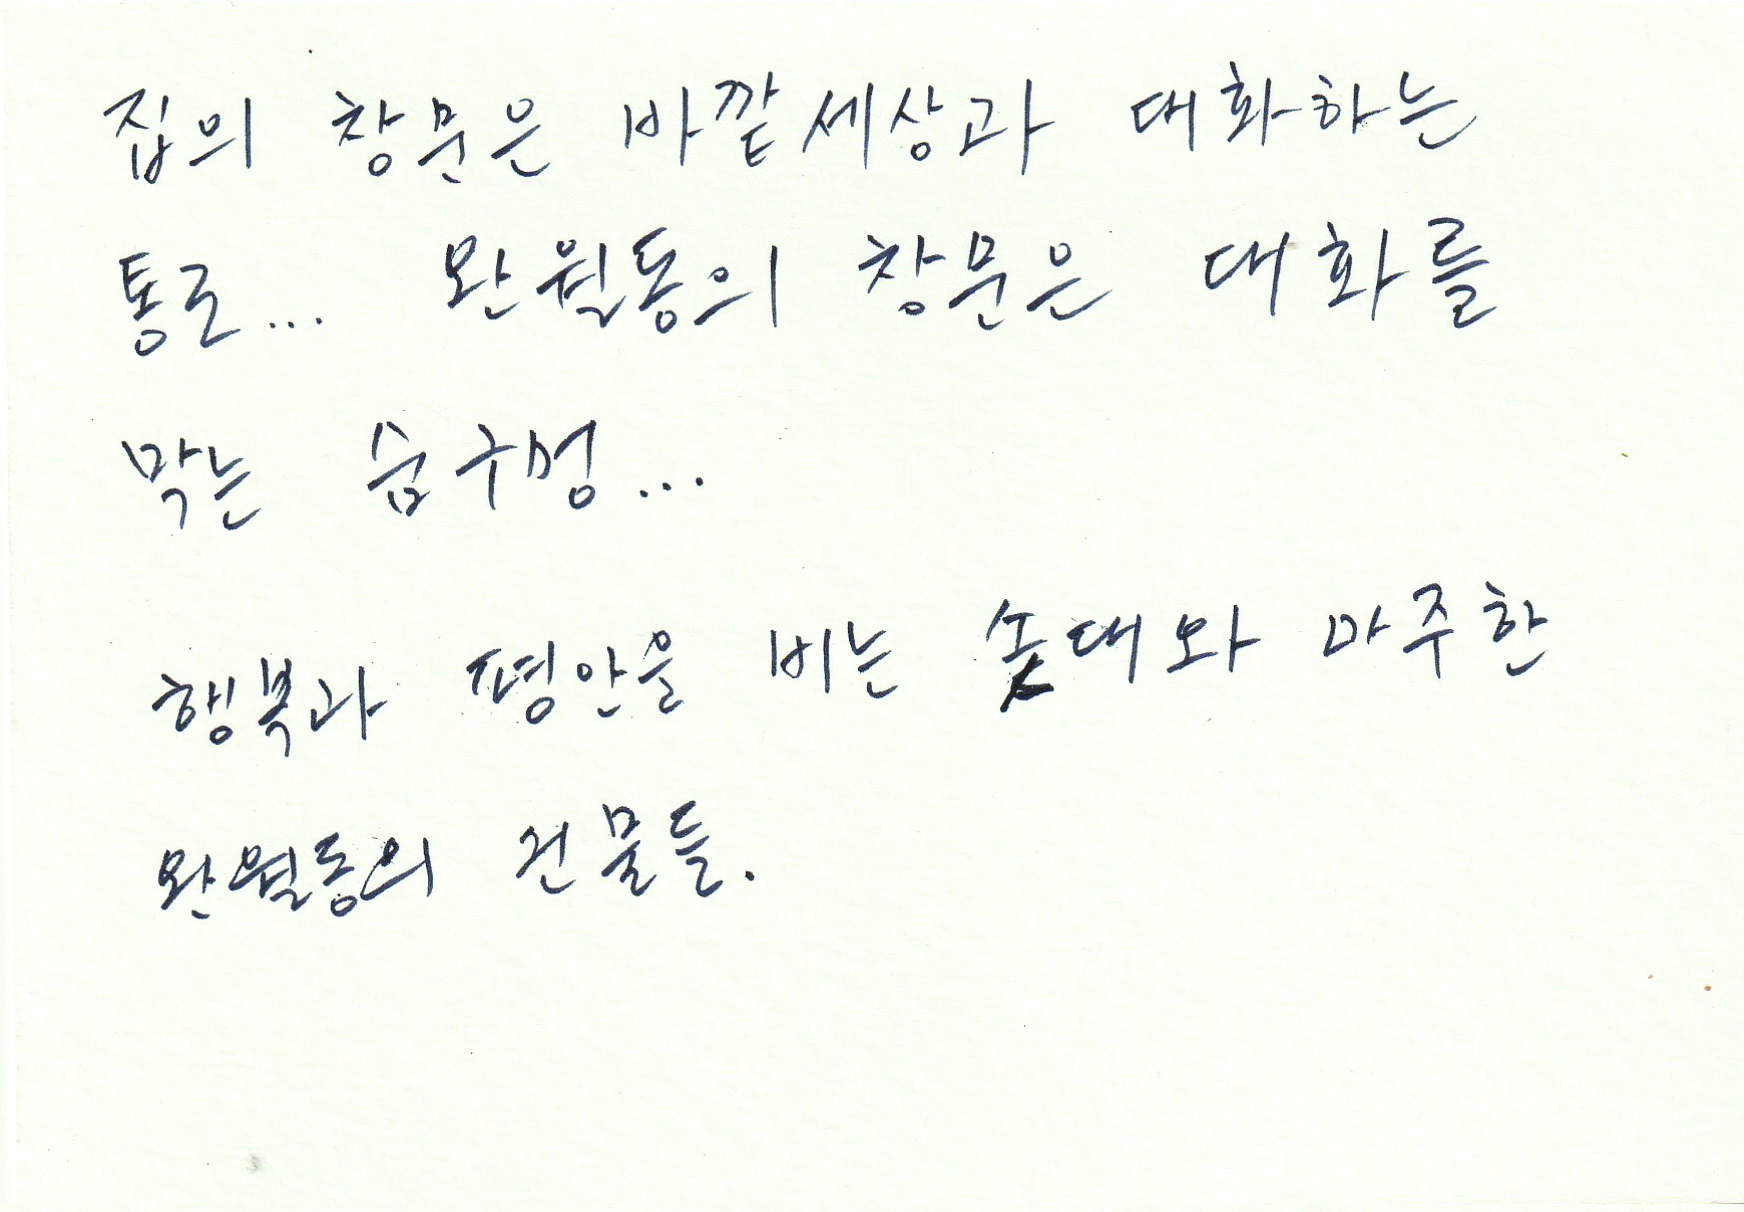 집의 창문은 바깥세상과 대화하는
통로... 완월동의 창문은 대화를
막는 숨구멍...
행복과 평안을 비는 솟대와 마주한
완월동의 건물들.